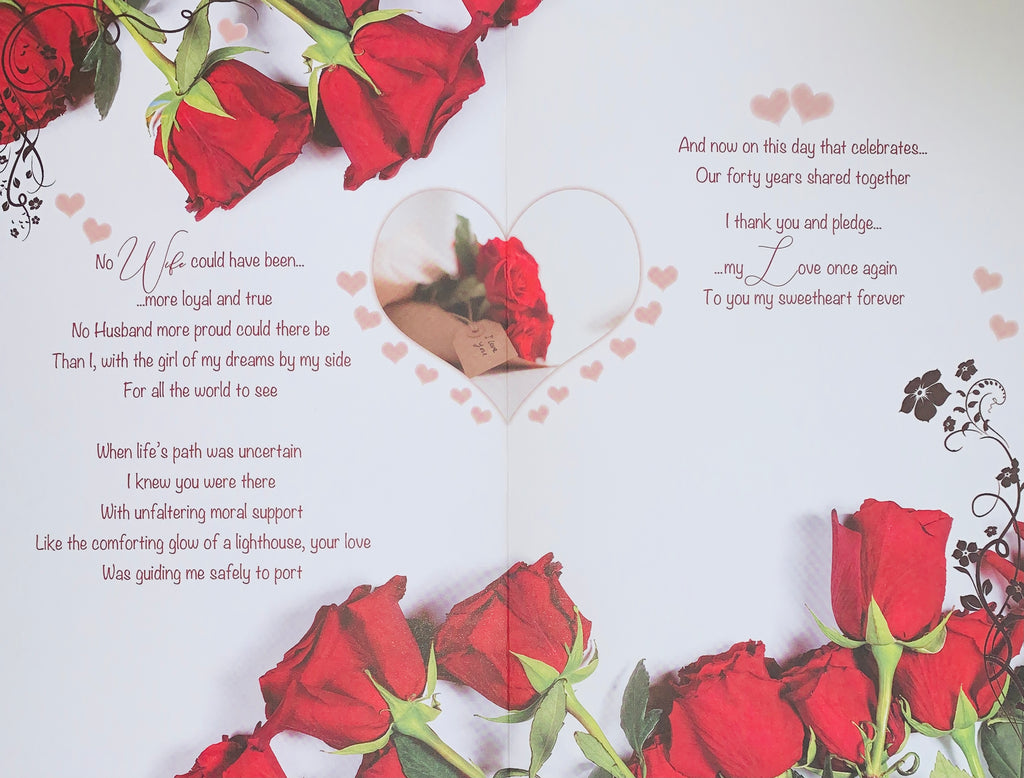 No Wife could have been...
...more loyal and true
No Husband more proud could there be
Than I, with the girl of my dreams by my side
For all the world to see
When life's path was uncertain
I knew you were there
With unfaltering moral support
Like the comforting glow of a lighthouse, your love
Was guiding me safely to port
I love
you!
And now on this day that celebrates...
Our forty years shared together
I thank you and pledge...
...my Love once again
To you my sweetheart forever